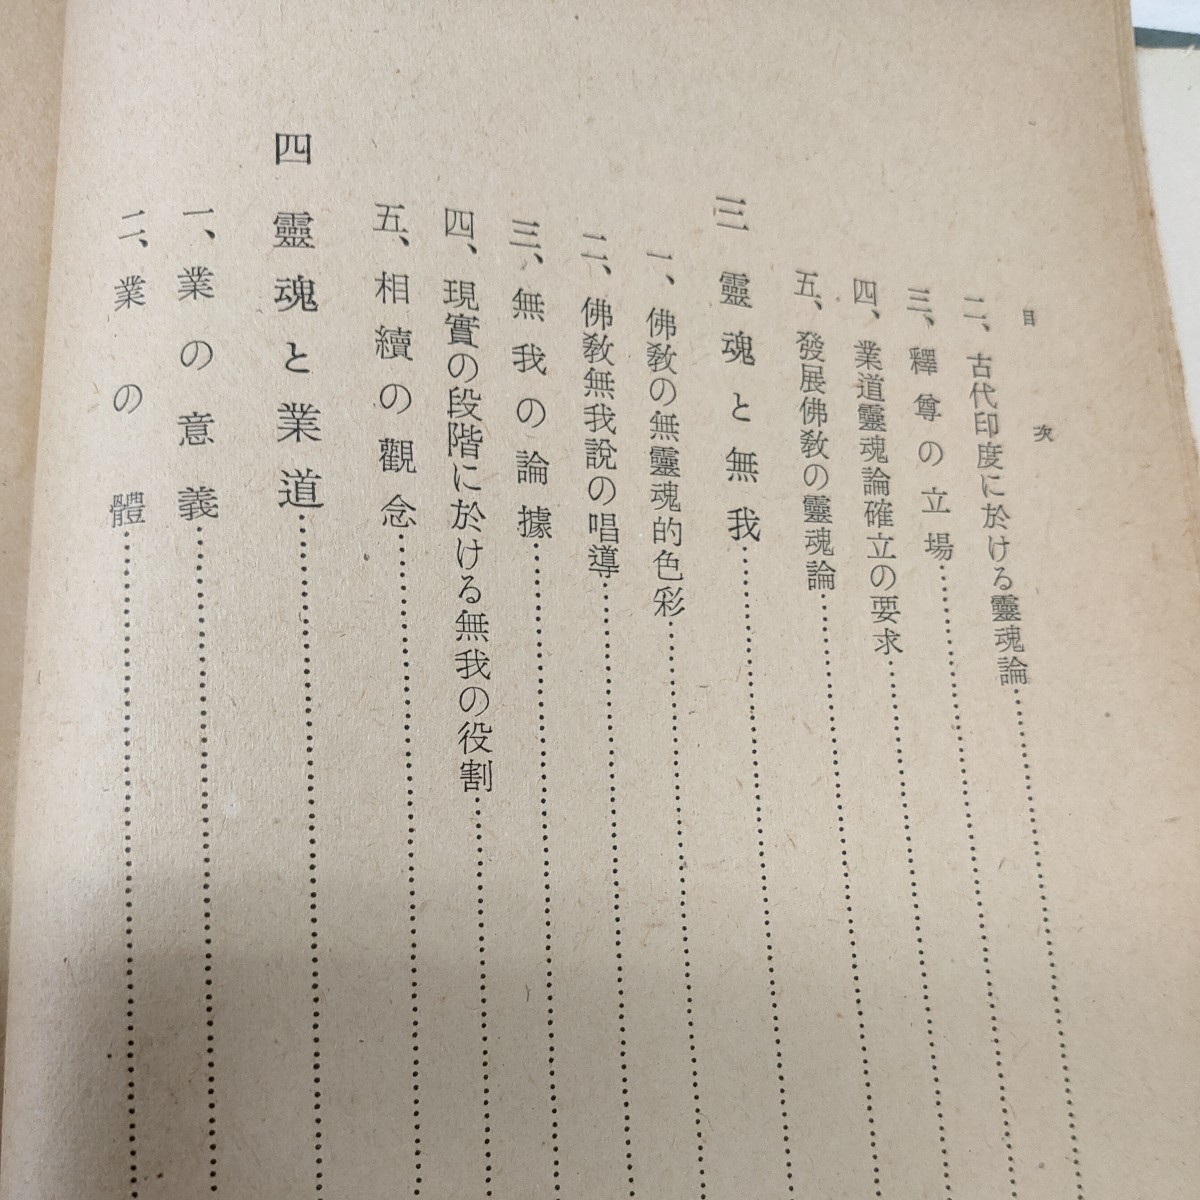 目次
二、古代印度に於ける靈魂論
三、釋尊の立場
四、業道靈魂論確立の要求
五、發展佛敎の靈魂論
三 靈魂と無我
一、佛敎の無靈魂的色彩
二、佛敎無我說の唱導
三、無我の論據
四、現實の段階に於ける無我の役割
五、相續の觀念
四 靈魂と業道
一、業の意義
二、業の體